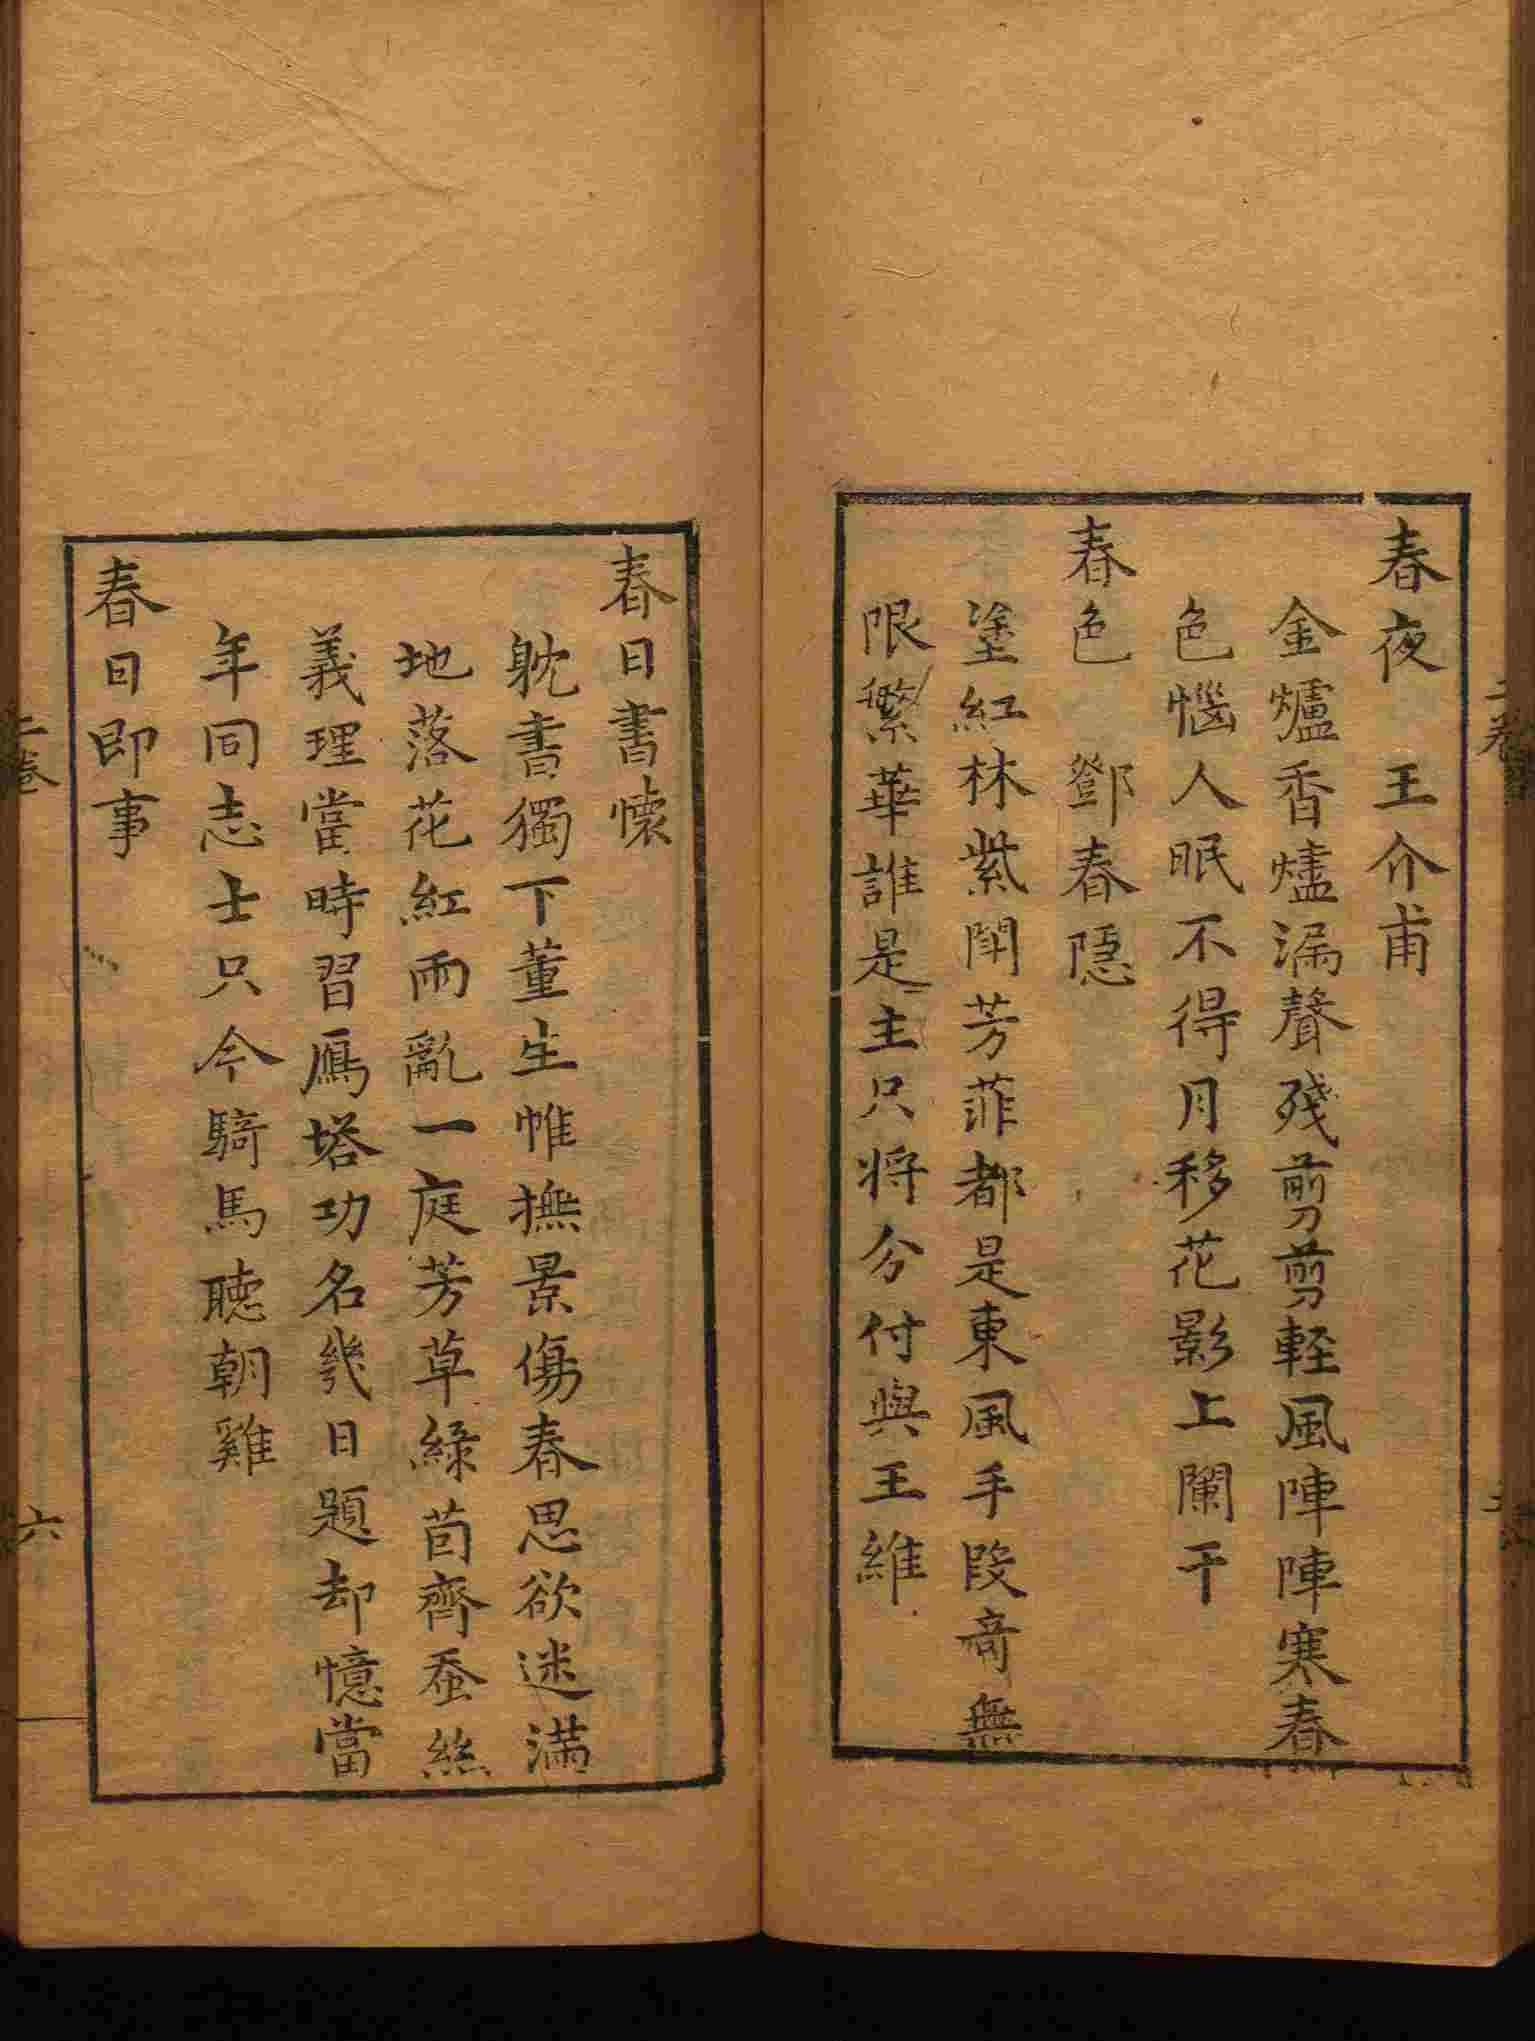 春夜　王介甫
金爐香燼漏聲殘剪剪軽風陣陣寒春
色惱人眠不得月移花影上闌干
春色　鄧春隱
塗紅林紫閙芳菲都是東風手段竒無
限繁華誰是主只将分付與王維
春日書懷
躭書獨下董生帷撫景傷春思欲迷滿
地落花紅雨亂一庭芳草綠茵齊蚕絲
義理當時習鴈塔功名幾日題却憶當
年同志士只今騎馬聴朝雞
春日即事
六